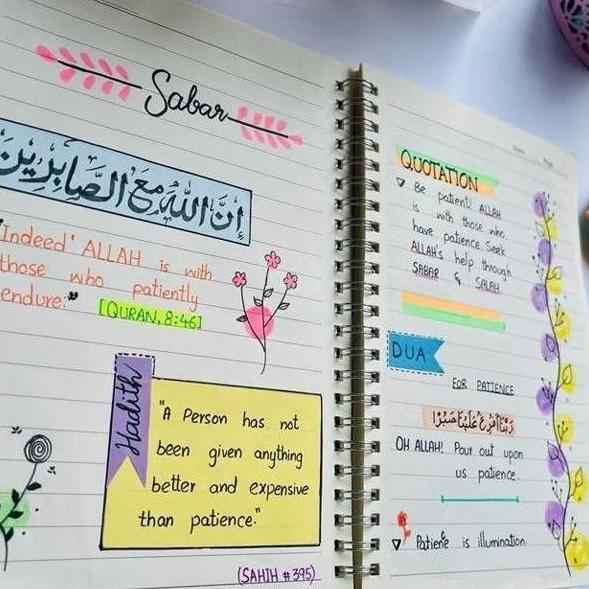 Sabar
إنّ اللّه مع الصّابرين
"Indeed' ALLAH is with
those who patiently
endure."
[QURAN, 8:46]
Hadith
"A Person has not
been given anything
better and expensive
than patience."
(SAHIH #395)
QUOTATION
Be patient! ALLAH
is with those who
have patience. Seek
ALLAH's help through
SABAR & SALAH.
DUA
FOR PATIENCE
ربّنا افرغ علينا صبرًا
OH ALLAH! Pour out upon
us patience.
Patience is illumination.